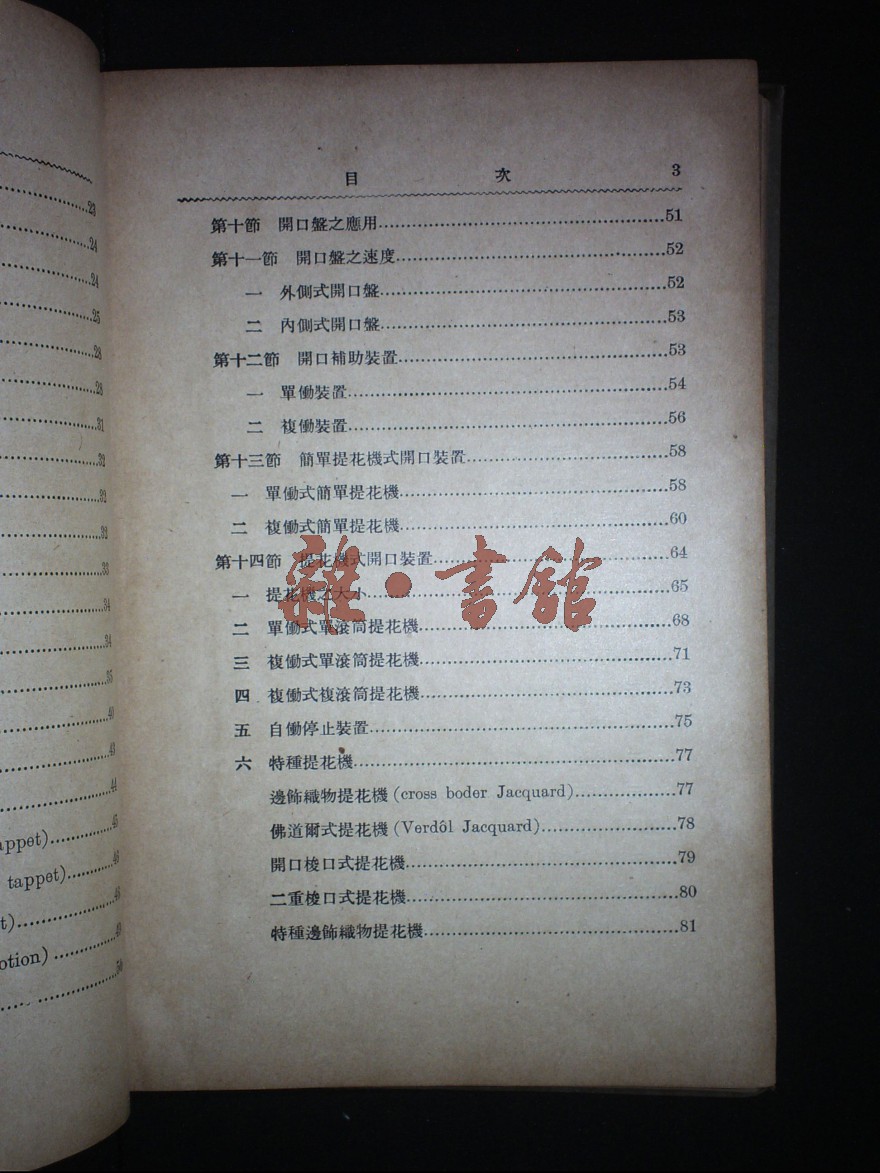 23
24
24
25
28
28
31
32
32
32
33
34
34
35
40
43
44
appet)......45
tappet)......46
t)......48
otion)......49
50
目 次 3
第十節 開口盤之應用......51
第十一節 開口盤之速度......52
一 外側式開口盤......52
二 內側式開口盤......53
第十二節 開口補助裝置......53
一 單働裝置......54
二 複働裝置......56
第十三節 簡單提花機式開口裝置......58
一 單働式簡單提花機......58
二 複働式簡單提花機......60
第十四節 提花機式開口裝置......64
一 提花機之大小......65
二 單働式單滾筒提花機......68
三 複働式單滾筒提花機......71
四 複働式複滾筒提花機......73
五 自働停止裝置......75
六 特種提花機......77
邊飾織物提花機(cross boder Jacquard)......77
佛道爾式提花機(Verdôl Jacquard)......78
開口梭口式提花機......79
二重梭口式提花機......80
特種邊飾織物提花機......81
雜·書館